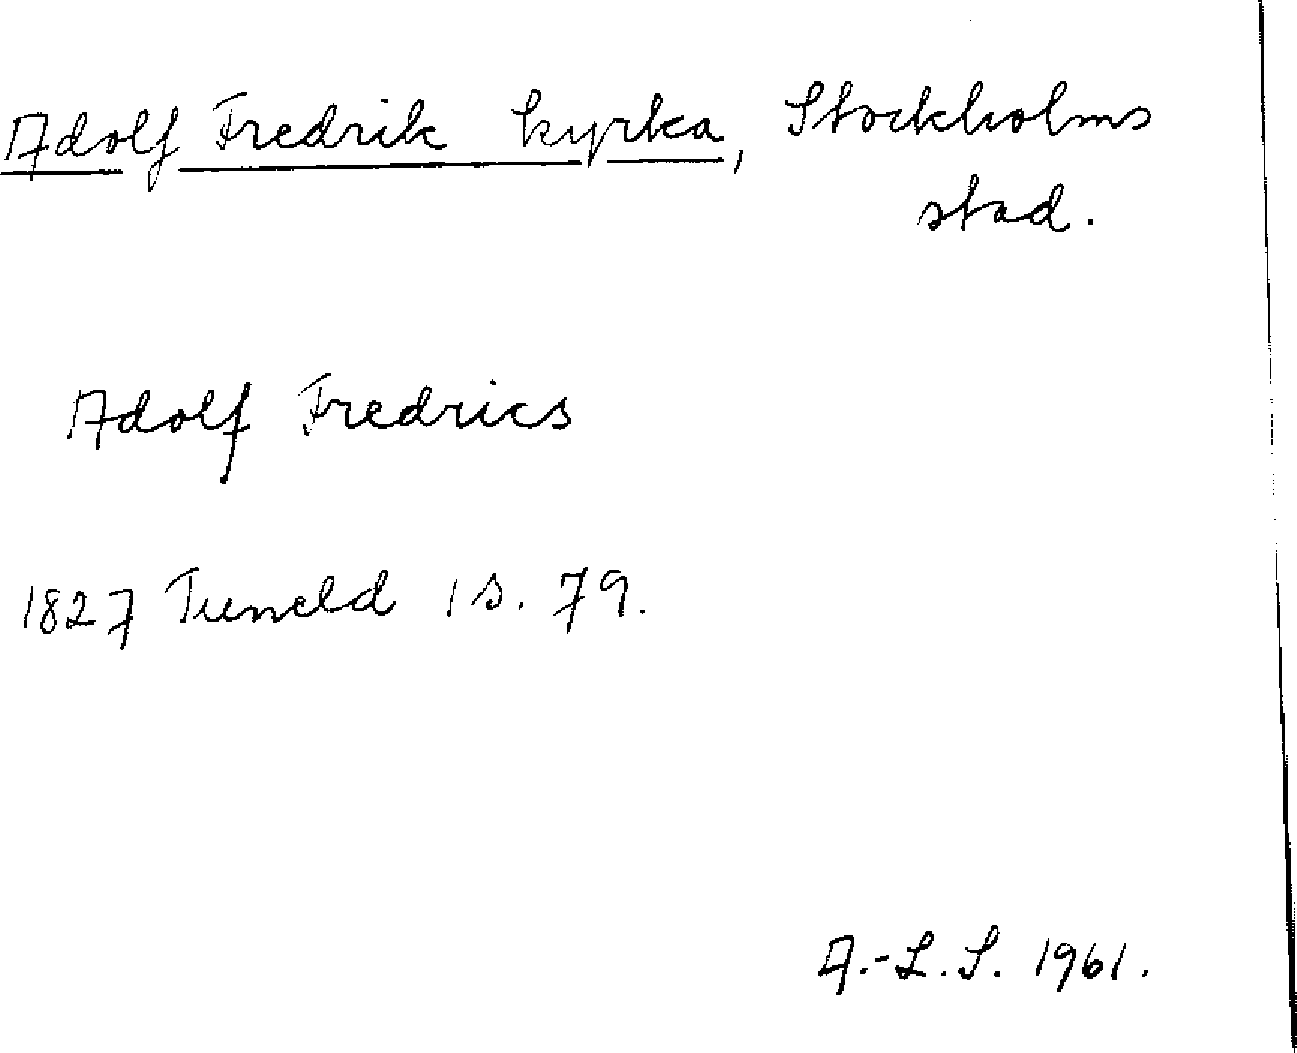 Adolf Fredrik kyrka, Stockholms
stad.
Adolf Fredrics
1827 Tuneld 1 s. 79.
A.-L. S. 1961.